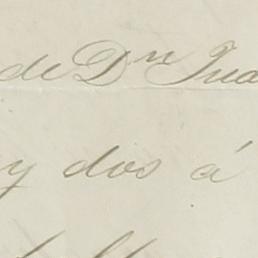 de Dⁿ Jua
y dos á